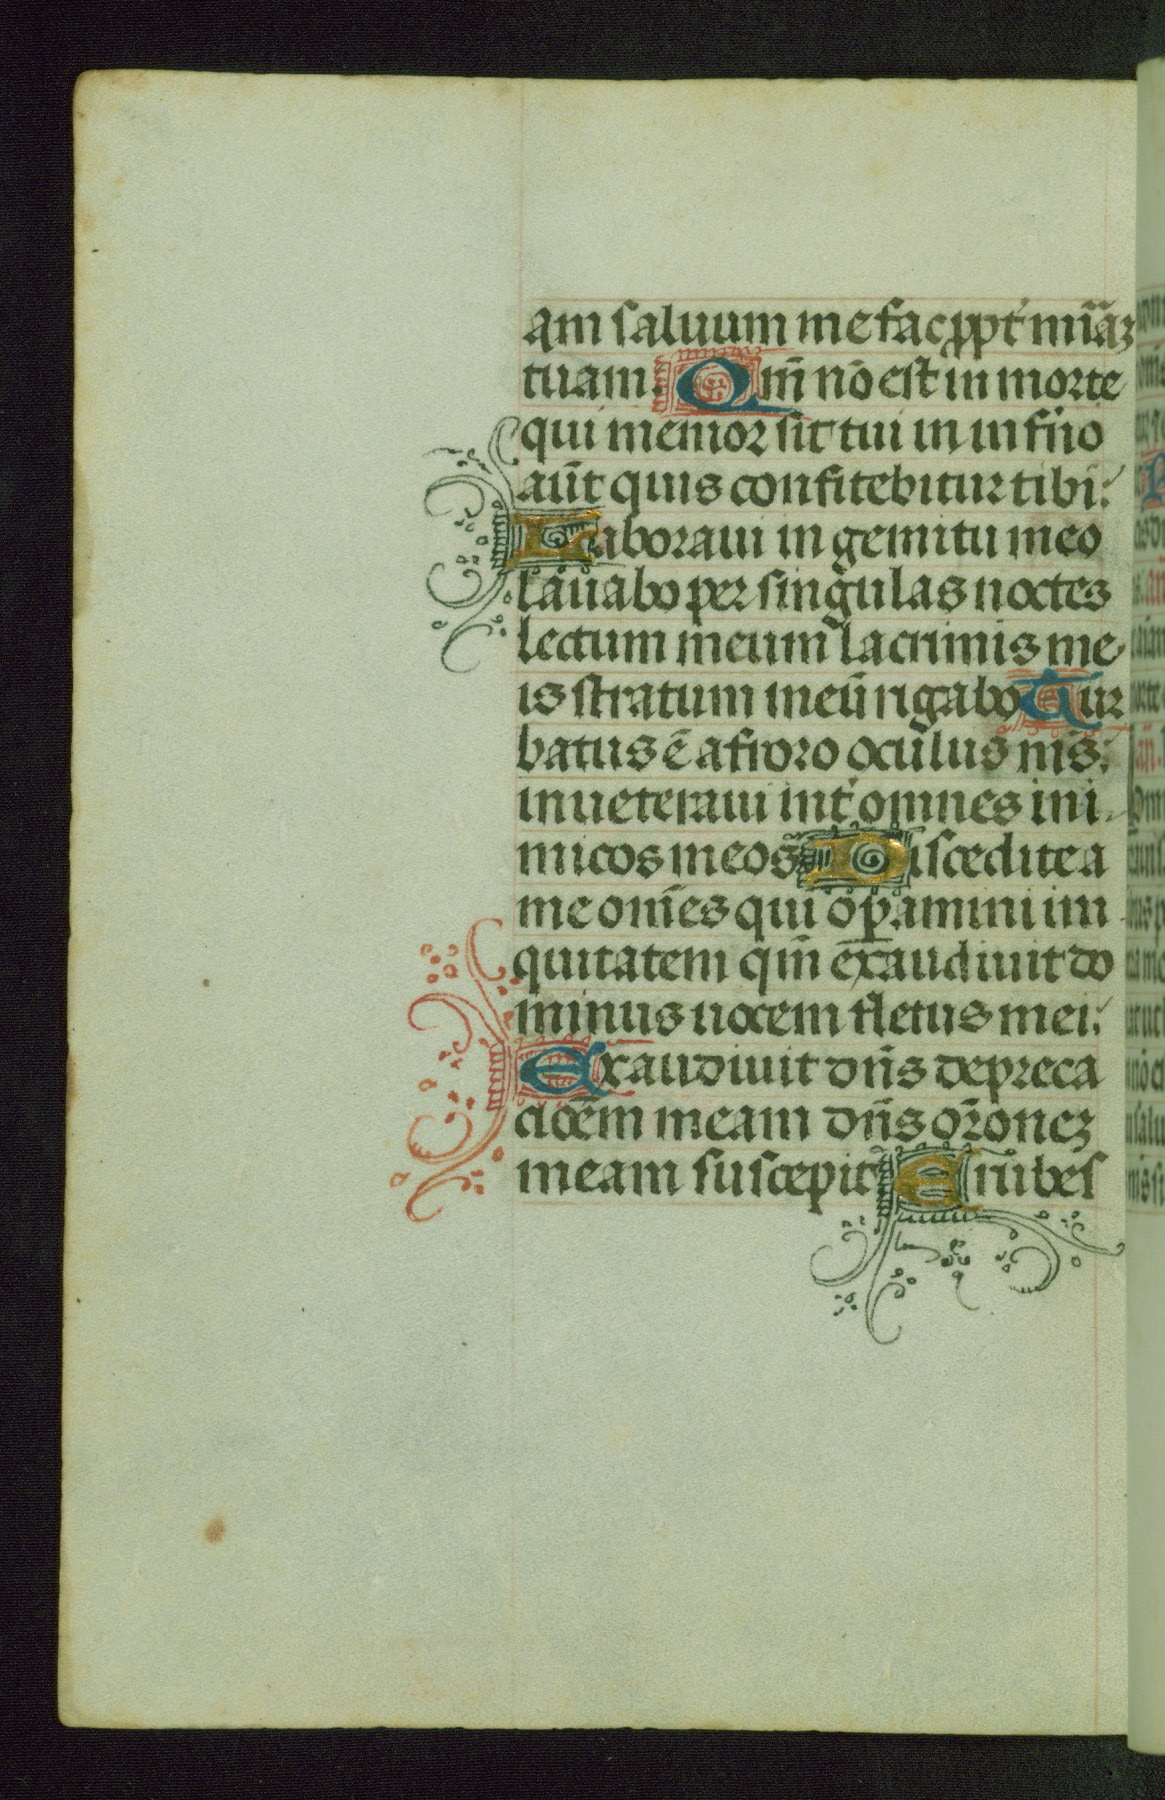 am saluum me fac ꝓpt̃ mĩaꝫ
tuam. Qm̃ nõ est in morte
qui memor sit tui in inf̃no
aũt quis confitebitur tibi:
Laboraui in gemitu meo
lauabo per singulas noctes
lectum meum lacrimis me
is stratum meũ rigabo Tur
batus ẽ a furoro oculus m̃s:
inueteraui int̃ omnes ini
micos meos Discedite a
me om̃es qui oꝑamini ini
quitatem qm̃ exaudiuit do
minus uocem fletus mei:
Exaudiuit dñs depreca
cioẽm meam dñs or̃oneꝫ
meam suscepit Erubes